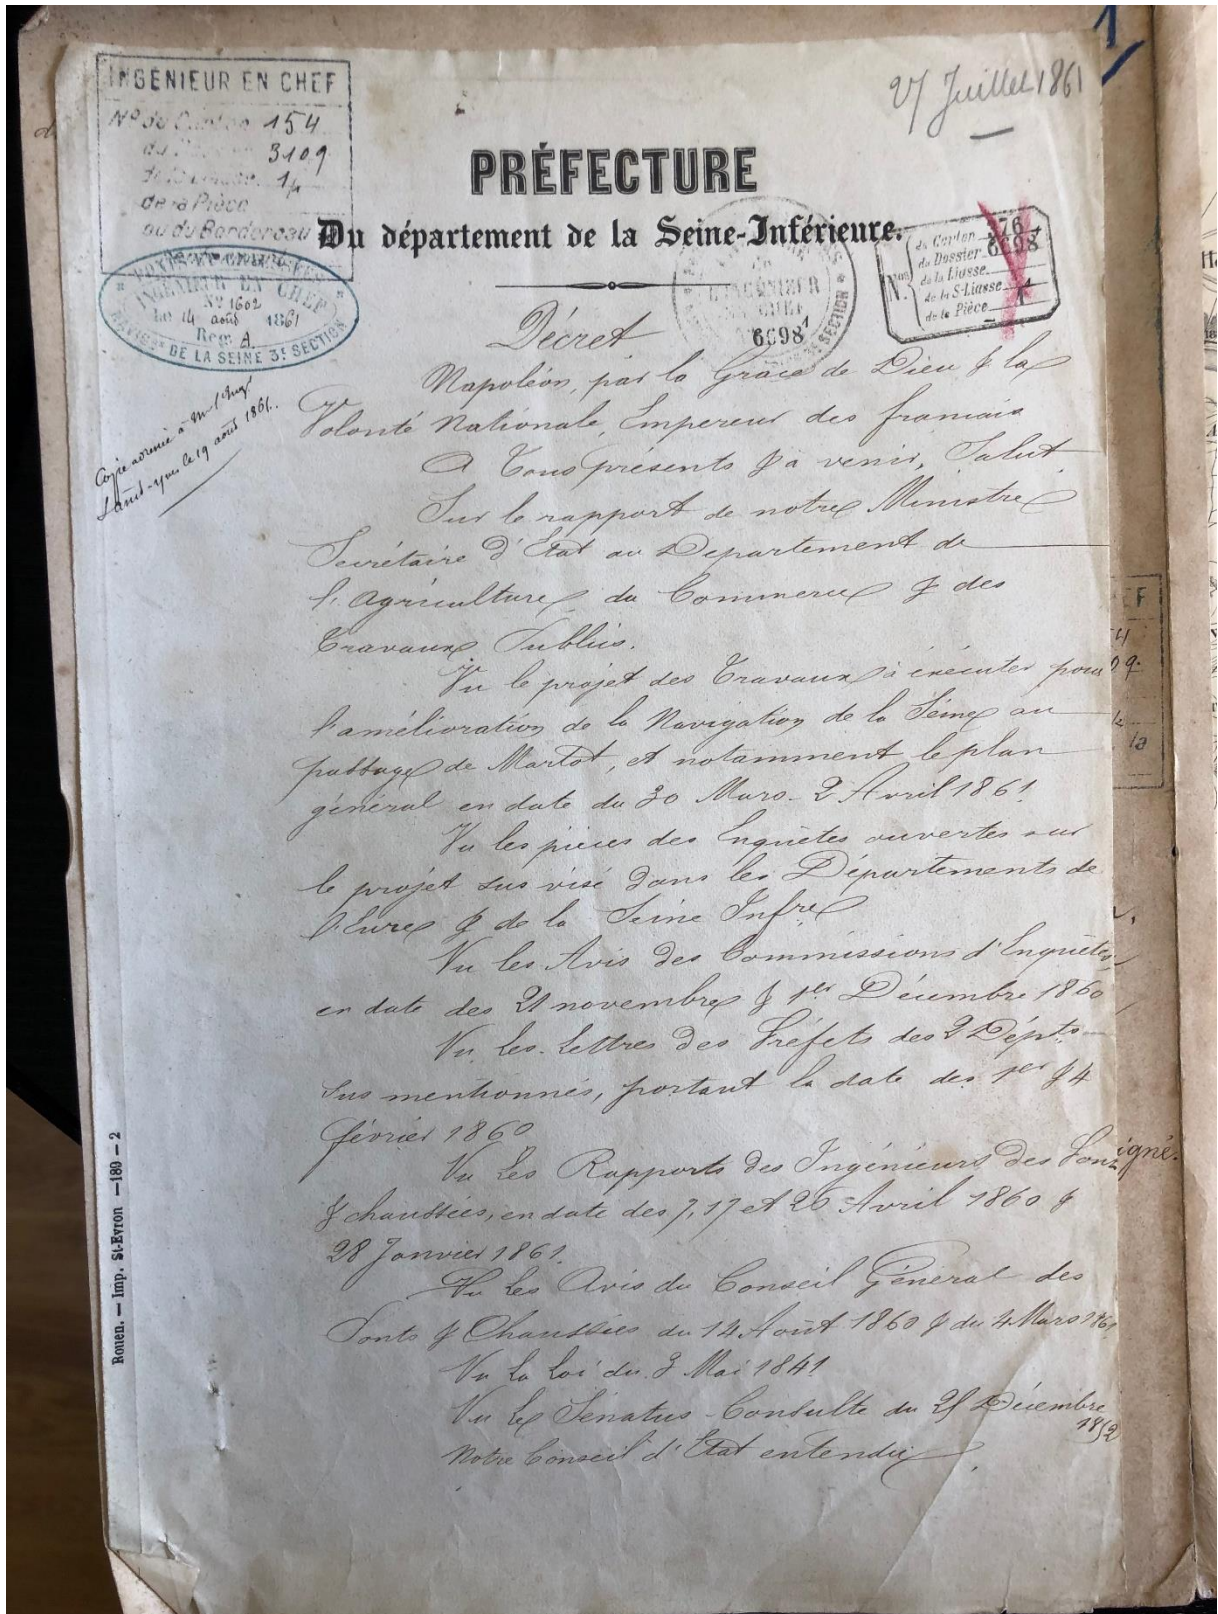 1
27 Juillet 1861
INGÉNIEUR EN CHEF
No du Carton 154
du 3109
de la Liasse 14
de la Pièce
ou du Bordereau
PRÉFECTURE
Du département de la Seine-Inférieure.
PONTS ET CHAUSSÉES
INGÉNIEUR EN CHEF
No 1602
Le 14 août 1861
Reg. A.
DE LA SEINE 3e SECTION
L'INGÉNIEUR
EN CHEF
6698 1
SECTION
Nos
du Carton 76
du Dossier 6698
de la Liasse
de la S-Liasse
de la Pièce 1
Copie adressée à Mr l'Ingr
le 19 août 1861.
Décret
Napoléon, par la Grâce de Dieu & la
Volonté Nationale, Empereur des français
A Tous présents & à venir, Salut
Sur le rapport de notre Ministre
Secrétaire d'Etat au Département de
l'Agriculture, du Commerce & des
Travaux Publics.
Vu le projet des Travaux à exécuter pour
l'amélioration de la Navigation de la Seine au
passage de Martot, et notamment le plan
général en date du 30 Mars - 2 Avril 1861.
Vu les pièces des Enquêtes ouvertes sur
le projet sus visé dans les Départements de
l'Eure & de la Seine Infre
Vu les Avis des Commissions d'Enquêtes,
en date des 21 novembre & 1er Décembre 1860
Vu les Lettres des Préfets des 2 Dépts
sus mentionnés, portant la date des 1er & 4
février 1860
Vu Les Rapports des Ingénieurs des Ponts
& chaussées, en date des 7, 17 et 26 Avril 1860 &
28 Janvier 1861.
Vu Les Avis du Conseil Général des
Ponts & Chaussées du 14 Août 1860 & du 4 Mars 1861
Vu La Loi du 3 Mai 1841
Vu Le Sénatus-Consulte du 25 Décembre
1852
Notre Conseil d'Etat entendu,
Rouen. — Imp. St-Evron — 180 — 2
igné.